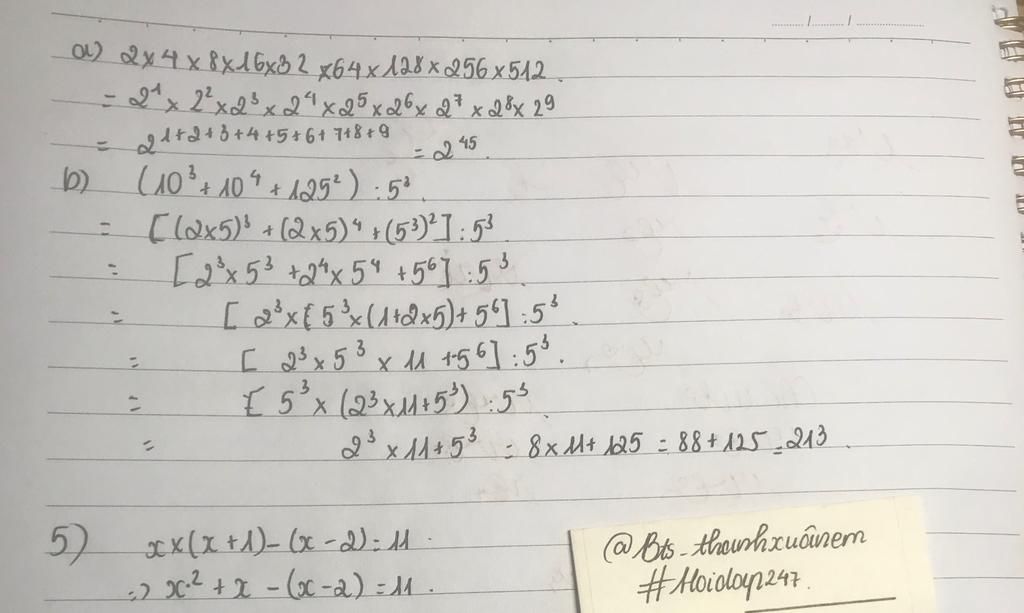 ...../...../..........
a) 2 x 4 x 8 x 16 x 32 x 64 x 128 x 256 x 512.
= 2¹ x 2² x 2³ x 2⁴ x 2⁵ x 2⁶ x 2⁷ x 2⁸ x 2⁹
= 2¹⁺²⁺³⁺⁴⁺⁵⁺⁶⁺⁷⁺⁸⁺⁹ = 2⁴⁵.
b) (10³ + 10⁴ + 125²) : 5³.
= [(2x5)³ + (2x5)⁴ + (5³)²] : 5³.
= [2³ x 5³ + 2⁴ x 5⁴ + 5⁶] : 5³.
= [ 2³ x [ 5³ x (1+2x5) + 5⁶] : 5³.
= [ 2³ x 5³ x 11 + 5⁶] : 5³.
= [ 5³ x (2³ x 11 + 5³) : 5³.
= 2³ x 11 + 5³ = 8 x 11 + 125 = 88 + 125 = 213.
5) x x (x + 1) - (x - 2) = 11.
=> x² + x - (x - 2) = 11.
@Bts_thanhxuâinem
#Hoidap247.